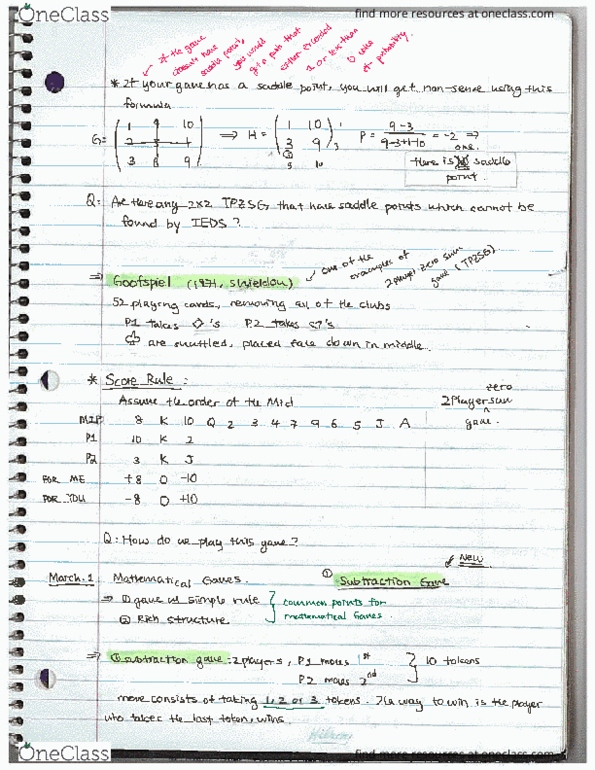 OneClass
find more resources at oneclass.com
If the game doesn't have saddle point, you would get a puts that either exceeded 1 or less than 0 value of probability.
* If your game has a saddle point, you will get non-sense using this
formula
G = ( 1 10
3 9 ) ⇒ H = ( 1 10
3 9 ) P = 9-3 / 9-3+1-10 = -2 ⇒
one.
there is saddle
point.
Q: Are there any 2x2 TPZSG that have saddle points which cannot be
found by IEDS?
⇒ Goofspiel (1971, sheldon) one of the examples of 2 player zero sum game (TPZSG)
52 playing cards, removing all of the clubs
P1 takes ◇'s P2 takes ♡'s
♧ are shuffled, placed face down in middle.
* Score Rule:
Assume the order of the Mid
zero
2 Player sum
game.
MID 8 K 10 Q 2 3 4 7 9 6 5 J A
P1 10 K 2
P2 3 K J
FOR ME +8 0 -10
FOR YOU -8 0 +10
Q: How do we play this game?
New
March.1 Mathematical Games. ① Subtraction Game
⇒ ① game w simple rule
② Rich structure
common points for
mathematical games.
⇒ ① subtraction game: 2 players, P1 moves 1st
P2 moves 2nd
10 tokens
move consists of taking 1, 2 or 3 tokens. The way to win is the player
who takes the last token, wins.
OneClass
find more resources at oneclass.com